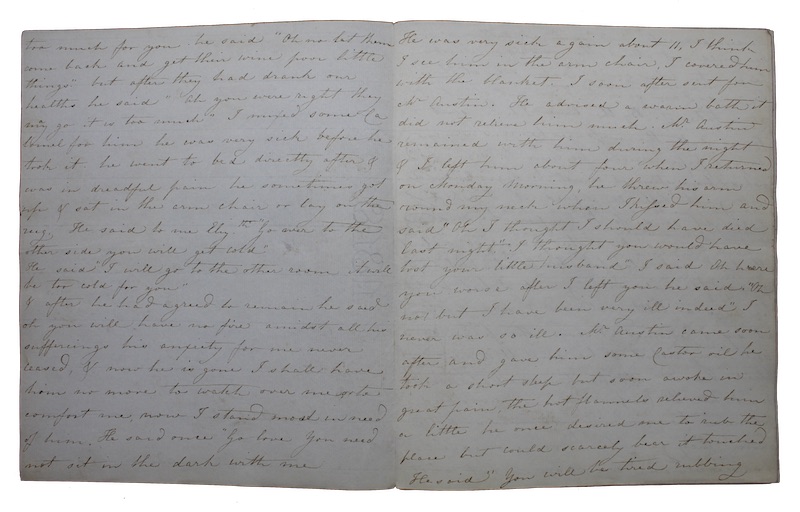 too much for you he said "Oh no let them
come back and get their wine poor little
things" but after they had drank our
healths he said "Oh you were right they
may go it is too much" I mixed some Ca
lomel for him he was very sick before he
took it he went to bed directly after &
was in dreadful pain he sometimes got
up & sat in the arm chair or lay on the
rug, He said to me Elyth "Go over to the
other side you will get cold"
He said "I will go to the other room it will
be too cold for you"
& after he had agreed to remain he said
oh you will have no fire amidst all his
sufferings his anxiety for me never
ceased, & now he is gone I shall have
him no more to watch over me & to
comfort me, now I stand most in need
of him. He said once "Go love you need
not sit in the dark with me
He was very sick again about 11, I think
I see him in the arm chair, I covered him
with the blanket. I soon after sent for
Mr Austin. He advised a warm bath it
did not relieve him much. Mr Austin
remained with him during the night
& I left him about four when I returned
on Monday Morning, he threw his arm
round my neck when I kissed him and
said "Oh I thought I should have died
last night" "I thought you would have
lost your little husband" I said Oh were
you worse after I left you he said "Oh
no! but I have been very ill indeed" I
never was so ill. Mr Austin came soon
after and gave him some Castor oil he
took a short sleep but soon awoke in
great pain, the hot flannels relieved him
a little he once desired me to rub the
place but could scarcely bear it touched
He said "You will be tired rubbing